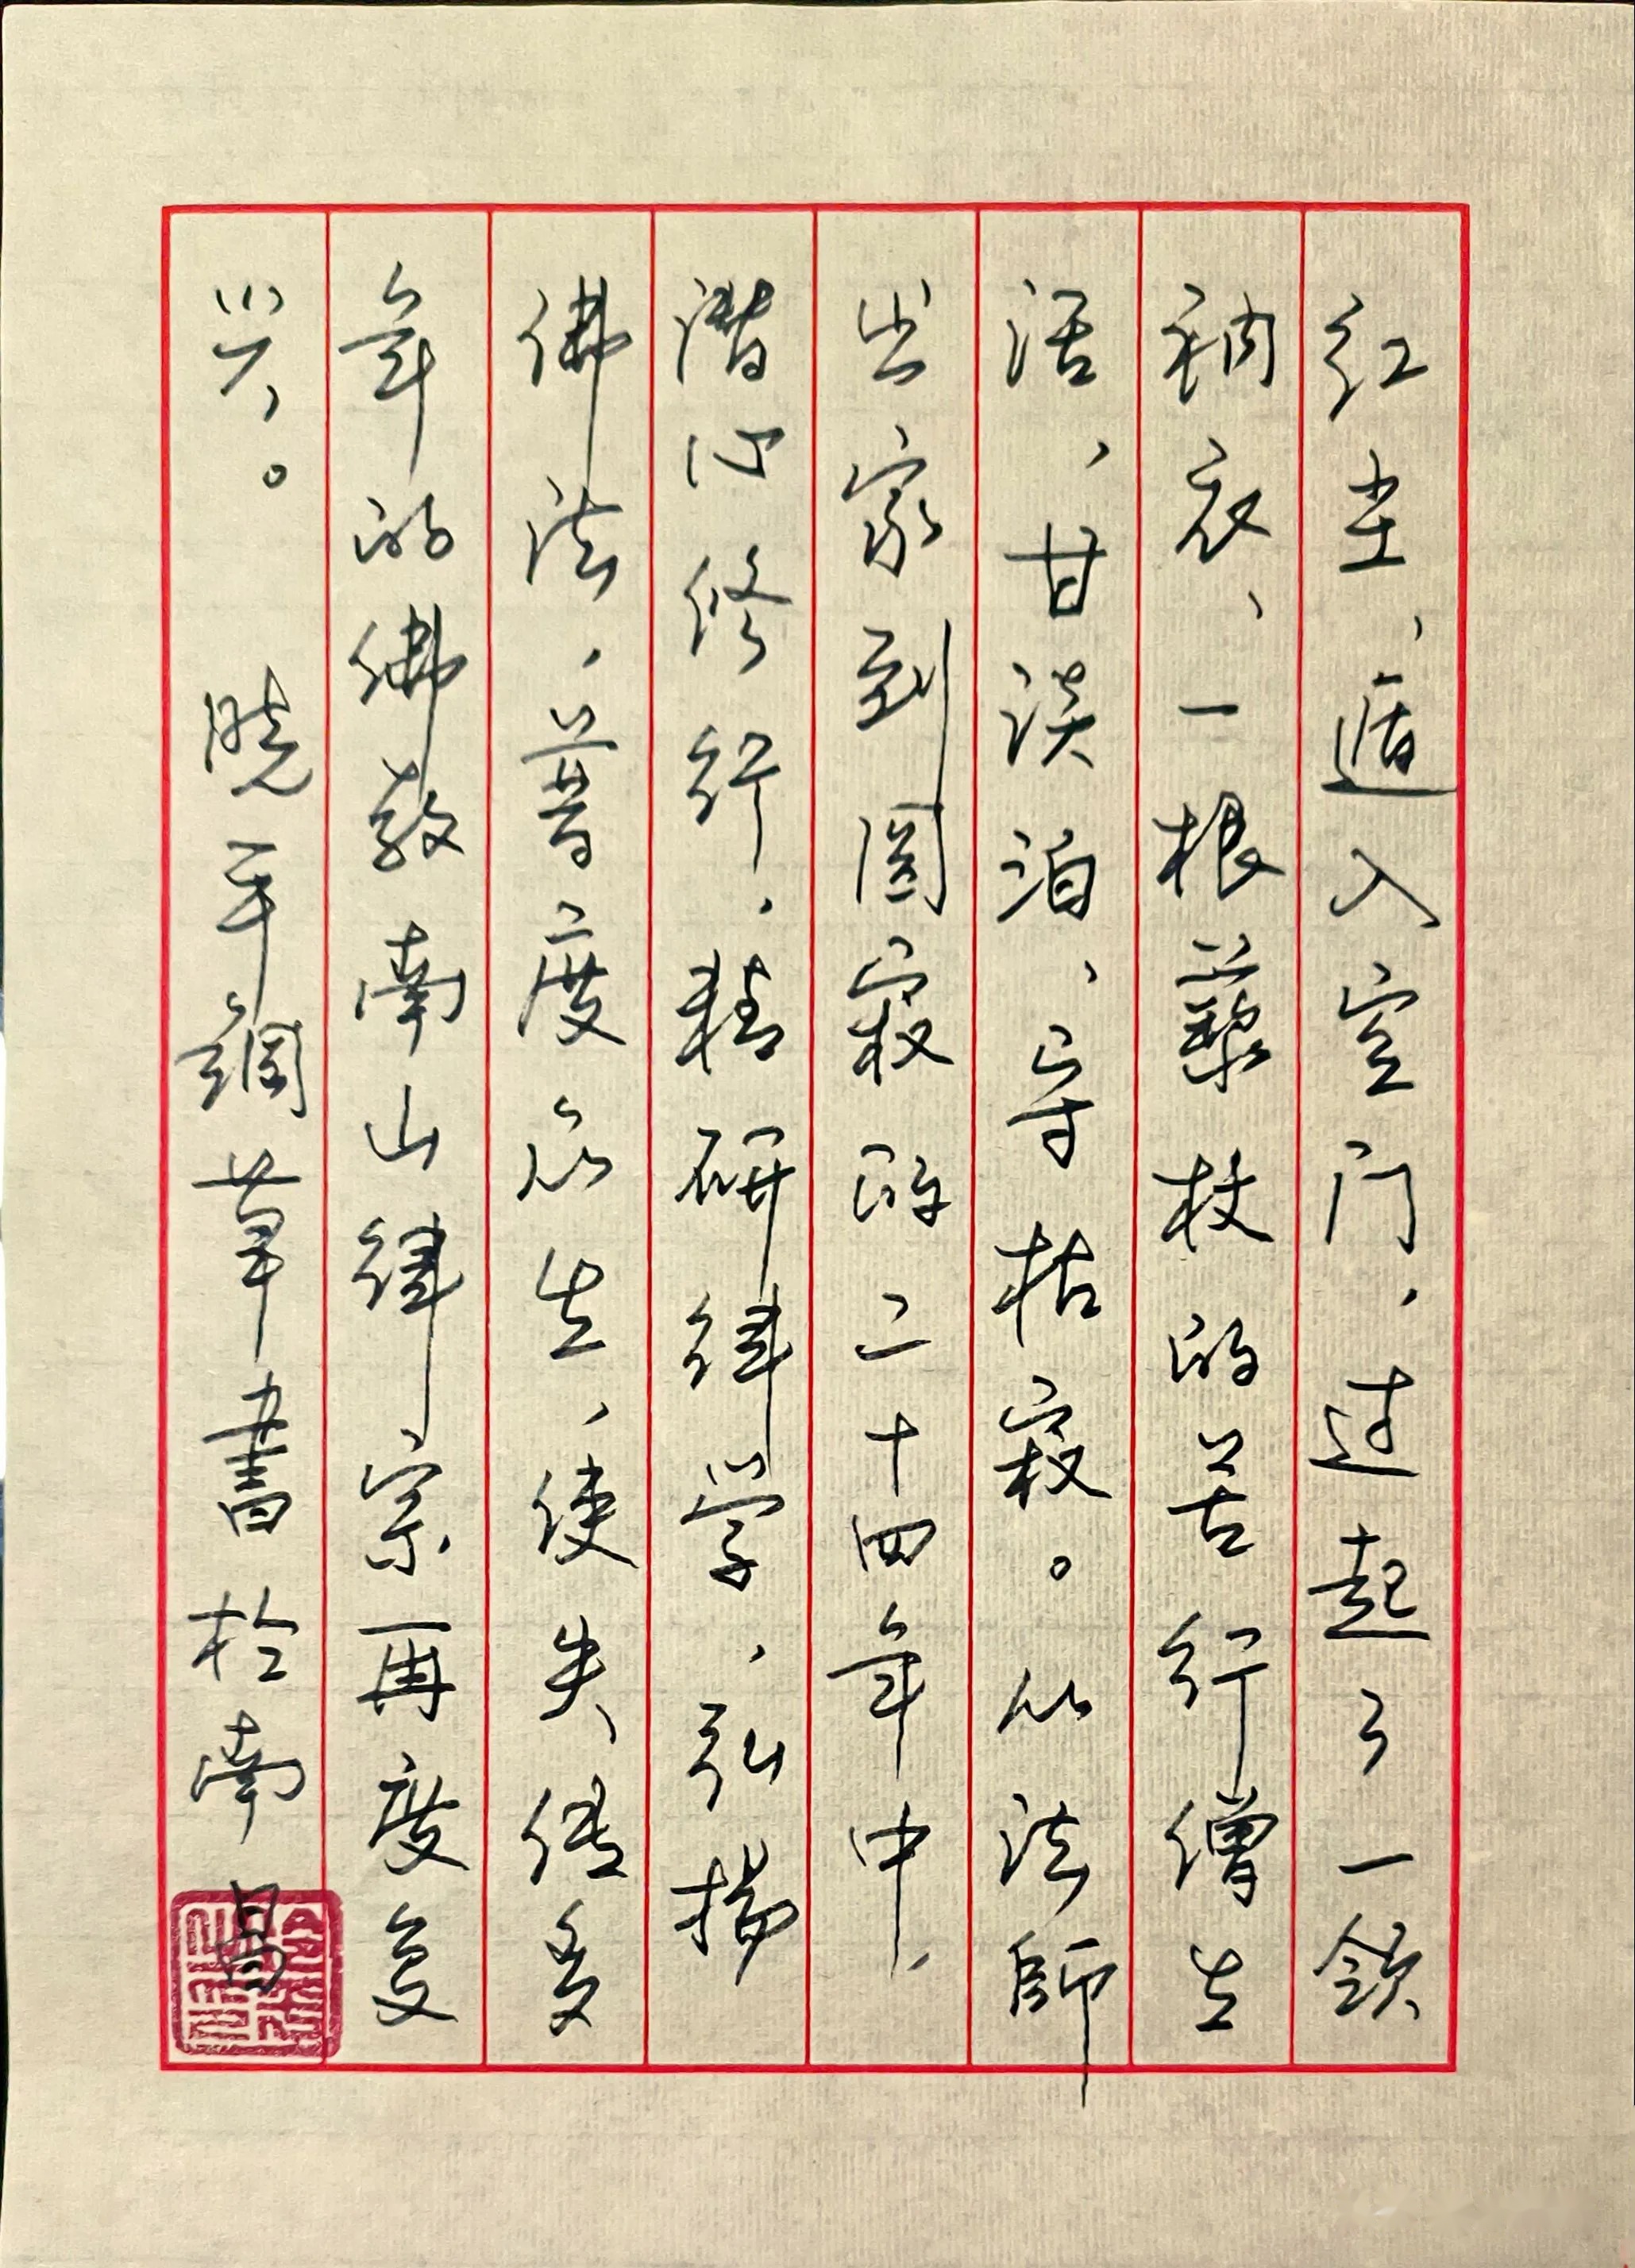 红尘，遁入空门，过起了一领
衲衣、一根藜杖的苦行僧生
活，甘淡泊，守枯寂。从法師
出家到圆寂的二十四年中，
潜心修行，精研律学，弘揚
佛法，普度众生，使失传多
年的佛教南山律宗再度复
兴。 晓平 草書於南昌